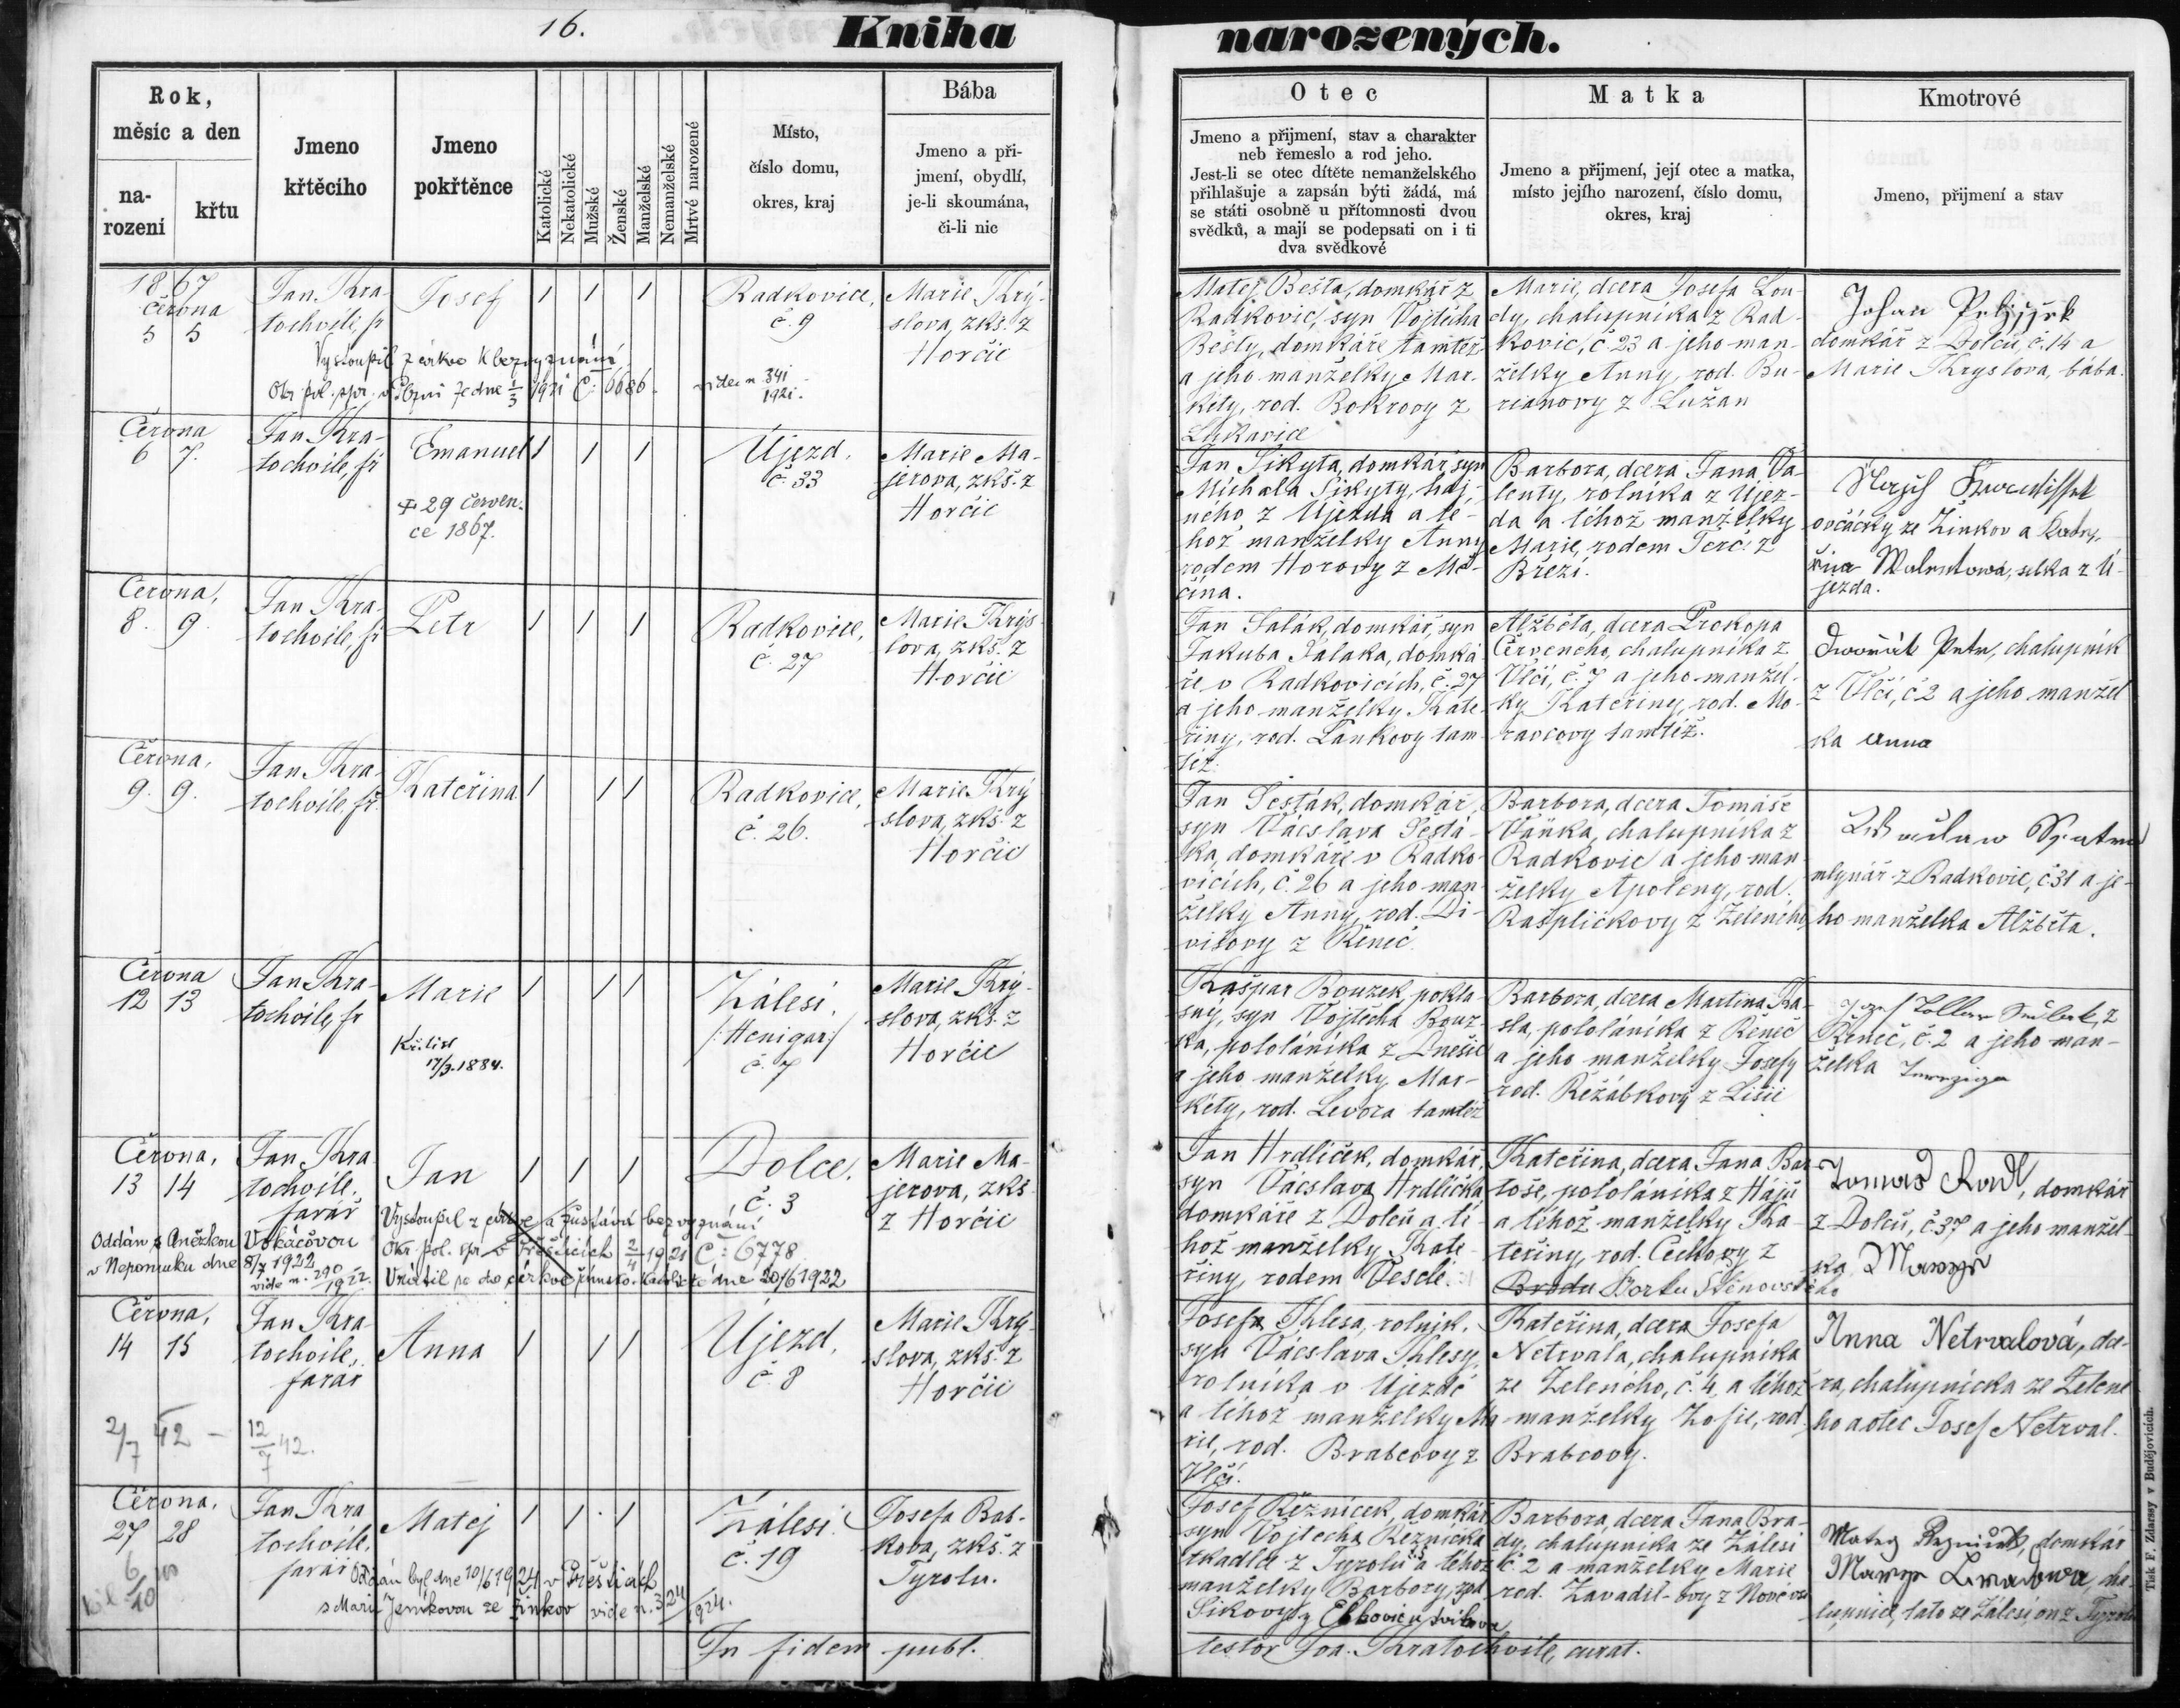 16.
Kniha narozených.
Rok,
měsíc a den
na-
rození
křtu
Jmeno
křtěcího
Jmeno
pokřtěnce
Katolické
Nekatolické
Mužské
Ženské
Manželské
Nemanželské
Mrtvé narozené
Místo,
číslo domu,
okres, kraj
Bába
Jmeno a při-
jmení, obydlí,
je-li skoumána,
či-li nic
Otec
Jmeno a přijmení, stav a charakter
neb řemeslo a rod jeho.
Jest-li se otec dítěte nemanželského
přihlašuje a zapsán býti žádá, má
se státi osobně u přítomnosti dvou
svědků, a mají se podepsati on i ti
dva svědkové
Matka
Jmeno a přijmení, její otec a matka,
místo jejího narození, číslo domu,
okres, kraj
Kmotrové
Jmeno, přijmení a stav
1867
Června
5 5
Jan Kra-
tochvile, fr
Josef
/ / /
Vystoupil z církve k bezvyznání
Okr. pol. spr. v Plzni ze dne 1/3 1921 Č: 6686.
vide n 341
1921.
Radkovice,
č. 9
Marie Krý-
slova, zkš. z
Horčic
Matěj Bešta, domkář z
Radkovic, syn Vojtěcha
Bešty, domkáře tamtéž
a jeho manželky Mar-
kéty, rod. Bokrovy z
Lukavice
Marie, dcera Josefa Lou-
dy, chalupníka z Rad-
kovic, č. 23 a jeho man-
želky Anny, rod. Bu-
rianovy z Lužan
Johan
domkář z Dolců, č. 14 a
Marie Kryslova, bába.
Června
6 7.
Jan Kra-
tochvile, fr
Emanuel
/ / /
+ 29 červen-
ce 1867.
Újezd.
č. 33
Marie Ma-
jerova, zkš. z
Horčic
Jan Sikyta, domkář, syn
Michala Sikyty, háj-
ného z Újezda a té-
hož manželky Anny
rodem Horovy z Mě-
čína.
Barbora, dcera Jana Va-
lenty, rolníka z Újez-
da a téhož manželky
Marie, rodem Terč. z
Březí.
ovčácky ze Žinkov a Kateř-
řina selka z Ú-
jezda.
Června,
8. 9.
Jan Kra-
tochvile, fr
Petr
/ / /
Radkovice,
č. 27
Marie Krýs-
lova, zkš. z
Horčic
Jan Šalák, domkář, syn
Jakuba Šalaka, domká-
ře v Radkovicích, č. 27
a jeho manželky Kate-
řiny, rod. Pankovy tam-
též.
Alžběta, dcera Prokopa
Červeného, chalupníka z
Vlčí, č. 7 a jeho manžel-
ky Kateřiny, rod. Mo-
ravcovy tamtéž.
Dwořák Petr, chalupník
z Vlčí, č 2 a jeho manžel
ka Anna
Června,
9. 9.
Jan Kra-
tochvile, fr.
Kateřina
/ / /
Radkovice,
č. 26.
Marie Krý-
slova, zkš. z
Horčic
Jan Šesták, domkář,
syn Vácslava Šestá-
ka, domkáře v Radko-
vicích, č. 26 a jeho man-
želky Anny, rod. Di-
višovy z Řeneč.
Barbora, dcera Tomáše
Vaňka, chalupníka z
Radkovic a jeho man-
želky Apoleny, rod.
Rašpličkovy z Zeleného
Waclaw
mlynář z Radkovic, č. 31 a je-
ho manželka Alžběta.
Června
12 13
Jan Kra-
tochvile, fr
Marie
/ / /
Kř. list
17/3. 1884.
Zálesí.
/: Henigar :/
č. 7
Marie Krý-
slova, zkš. z
Horčic
Kašpar Bouzek, pokla-
sný, syn Vojtěcha Bouz-
ka, pololáníka z Dnešic
a jeho manželky Mar-
kéty, rod. Levora tamtéž
Barbora, dcera Martina Ka-
sla, pololáníka z Řeneč
a jeho manželky Josefy
rod. Řežábkovy z Lišic
Jozef z
Řeneč, č. 2 a jeho man-
želka
Června,
13 14
Jan Kra-
tochvile,
farář
Jan
/ / /
Vystoupil z církve a zůstává bez vyznání
Okr. pol. spr. v Přešticích 2/4 1921 Č: 6778
Vrátil se do církve římsko-katolické dne 20/6 1922
Oddán s Anežkou Vokáčovou
v Nepomuku dne 8/7 1922
vide n. 290
1922.
Dolce.
č. 3
Marie Ma-
jerova, zkš
z Horčic
Jan Hrdliček, domkář,
syn Vácslava Hrdlička
domkáře z Dolců a té-
hož manželky Kate-
řiny, rodem Veselé.
Kateřina, dcera Jana Bar-
toše, pololáníka z Hájů
a téhož manželky Ka-
teřiny, rod. Čechovy z
Brodu Borku Štěnovského
Tomaš Radl, domkář
z Dolců, č. 37 a jeho manžel-
ka
Června,
14 15
Jan Kra-
tochvile,
farář
Anna
/ / /
2/7 42 – 12/7 42.
Újezd,
č. 8
Marie Krý-
slova, zkš. z
Horčic
Josef Klesa, rolník,
syn Vácslava Klesy,
rolníka v Újezdě
a téhož manželky Ma-
rie, rod. Brabcovy z
Vlčí.
Kateřina, dcera Josefa
Netrvala, chalupníka
ze Zeleného, č. 4, a téhož
manželky Žofie, rod.
Brabcovy.
Anna Netrvalová, dce-
ra, chalupnická ze Zelené
ho a otec Josef Netrval.
Června,
27 28
Jan Kra
tochvile,
farář
Matěj
/ / /
Oddán byl dne 10/6 1924 v Přešticích
s Marií Jeníkovou ze Žinkov vide n. 324/1924.
Zálesí.
č. 19
Josefa Bab-
kova, zkš. z
Tyrolu.
Josef Řezníček, domkář
syn Vojtěcha Řezníčka
tkadlce z Tyrolu a téhož
manželky Barbory, rod
Sikovy z
Barbora, dcera Jana Bra-
dy, chalupníka ze Zálesí
č. 2 a manželky Marie
rod. Zavadil-ovy z Nové vsi
Mateg domkář
lupnice, tato ze Zálesí, on z Tyrolu
In fidem publ.
testor Joa. Kratochvile, curat.
Tisk F. Zdarssy v Budějovicích.